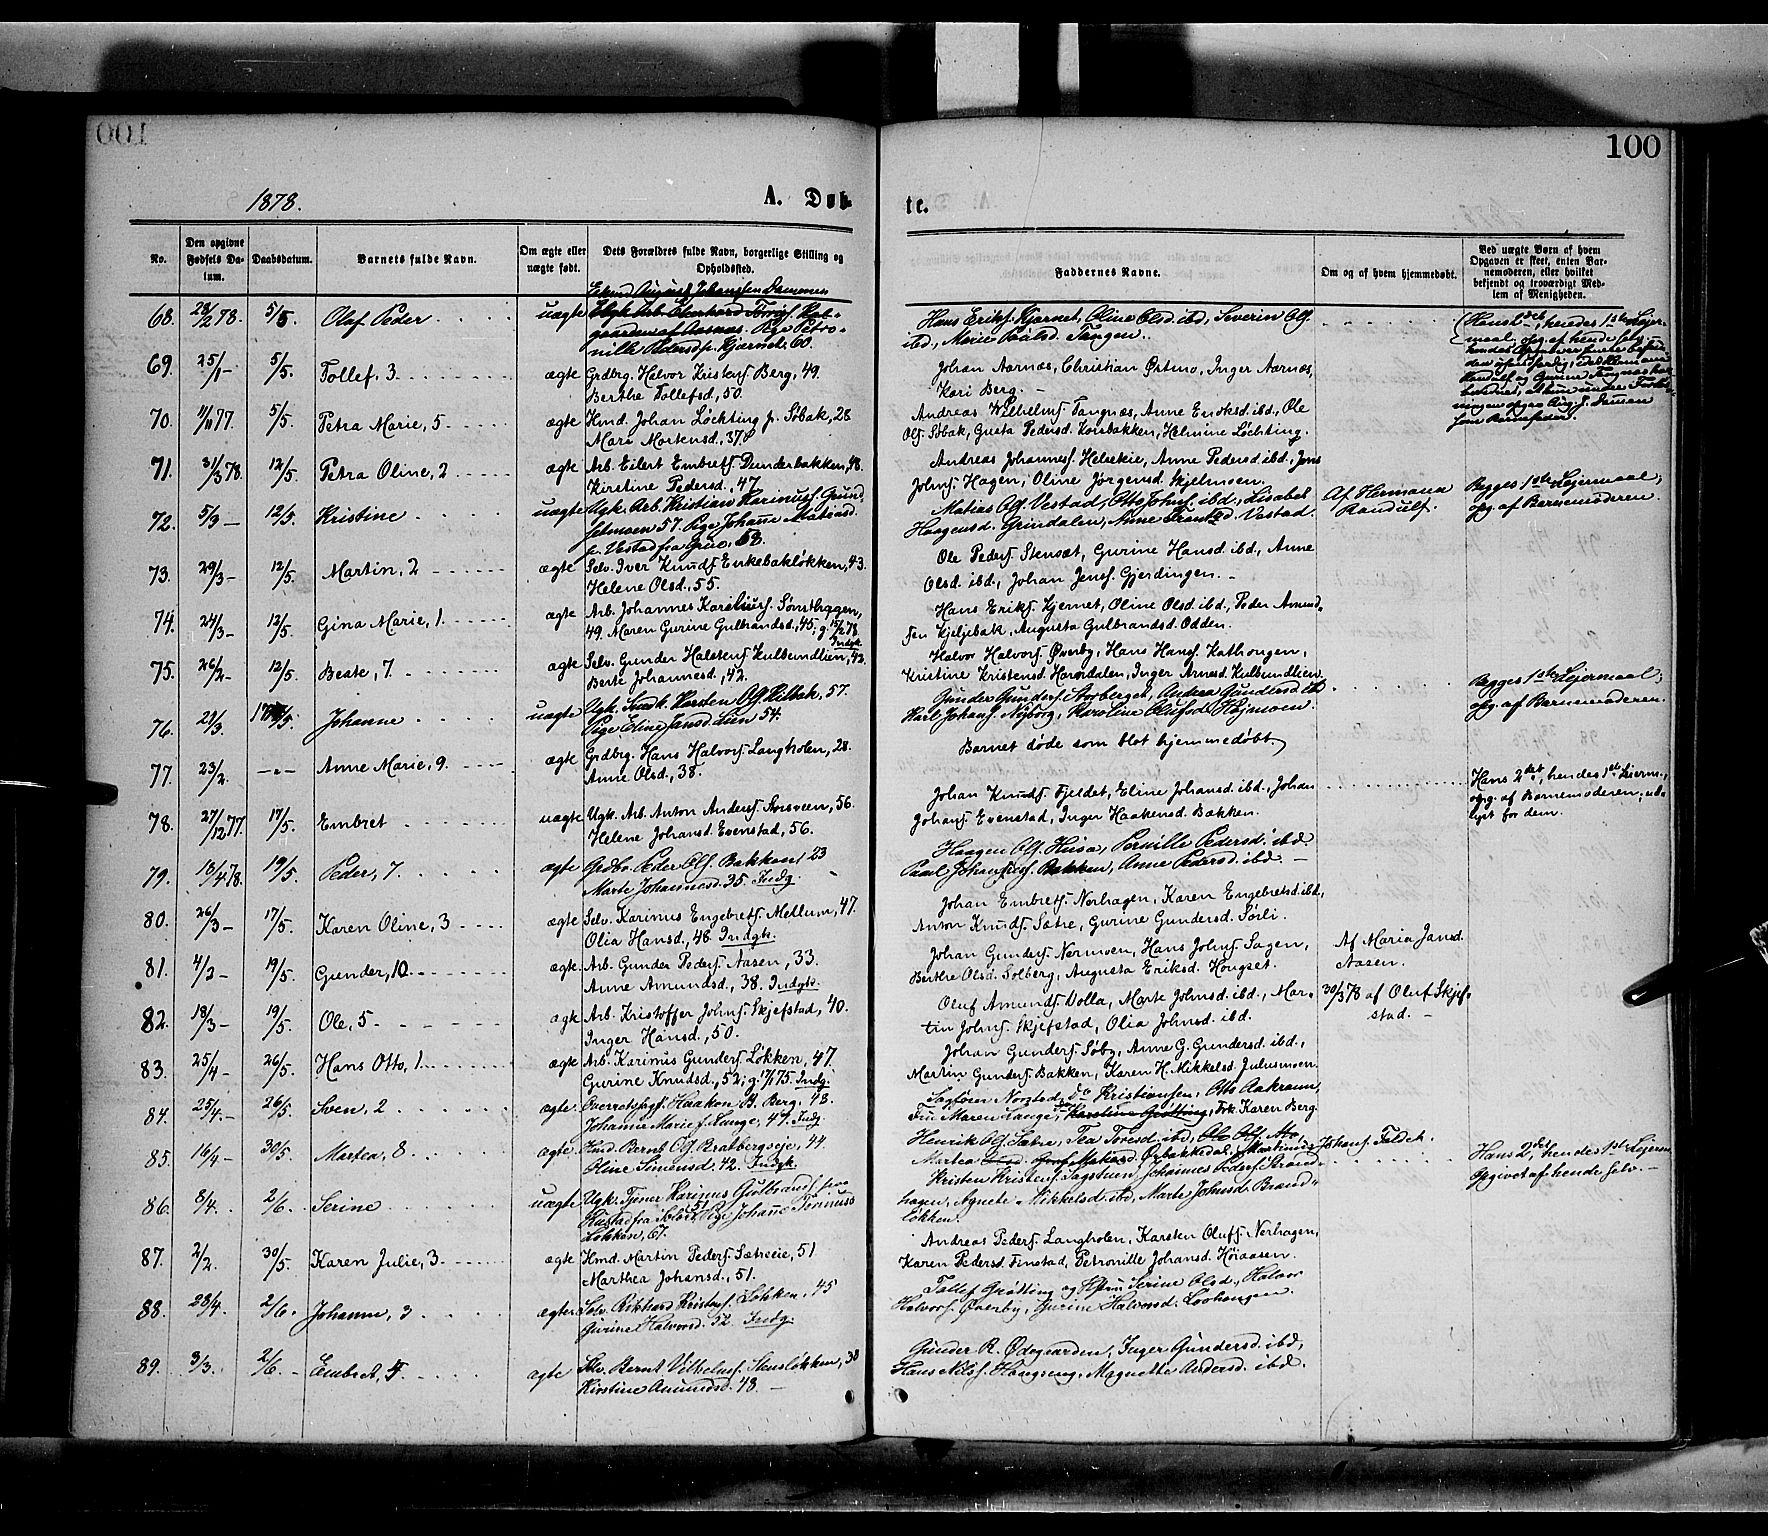 100
1878.
A. Døb-
te.
No.
Den opgivne Fødsels Datum.
Daabsdatum.
Barnets fulde Navn.
Om ægte eller uægte født.
Dets Forældres fulde Navn, borgerlige Stilling og Opholdssted.
Faddernes Navne.
Om og af hvem hjemmedøbt.
Ved uægte Børn af hvem Opgaven er skeet, enten Barnemoderen, eller hvilket bekjendt og troværdigt Medlem af Menigheden.
68. 28/2 78. 5/5. Olaf Peder uægte
Pige Petro-
nille Pedersdr. Kjernet, 60.
Hans Eriks. Kjernet, Oline Olsd. ibd., Severin Ols.
ibd., Marie Paulsd. Tangen.
69. 25/1 — 5/5. Tollef, 3 ægte Grdbrg. Halvor Kristens. Berg, 49.
Berthe Tollefsd., 50.
Johan Aarnæs, Christian Østmo, Inger Aarnæs,
Kari Berg. —
70. 11/11 77. 5/5. Petra Marie, 5 ægte Hmd. Johan Løchting p. Søbak, 28
Mari Mortensd., 37
Andreas Wilhelms. Tangnæs, Anne Eriksd. ibd., Ole
Ols. Søbak, Gusta Pedersd. Korsbakken, Helmine Løchting.
71. 31/3 78. 12/5. Petra Oline, 2 ægte Arb. Eilert Embrets. Dunderbakken, 48.
Kirstine Pedersd., 47.
Andreas Johannes. Helsekie, Anne Pedersd. ibd., Jens
Johns. Hagen, Oline Jørgensd. Skjelmoen.
72. 5/3 — 12/5. Kristine uægte Ugk. Arb. Kristian Karinus. Grund-
selmoen 57. Pige Johanne Matiasd.
p. Vestad fra Grue, 58.
Matias Ols. Vestad, Otto Johns. ibd., Lisabet
Haagensd. Grindalen, Anne Frantsd. Vestad.
Af Hermana
Randulf.
Begges 1ste Leiermaal,
opg. af Barnemoderen.
73. 29/3 — 12/5. Martin, 2 ægte Selv. Iver Knuds. Enkebakløkken, 43.
Helene Olsd., 55.
Ole Peders. Stensæt, Gurine Hansd. ibd., Anne
Olsd. ibd., Johan Jens. Gjerdingen. —
74. 24/3 — 12/5. Gina Marie, 1. ægte Arb. Johannes Karelius. Sønstbyggen,
49. Maren Gurine Gulbrandsd., 45; g. 15/2 78. Indgk.
Hans Eriks. Kjernet, Oline Olsd. ibd., Peder Amund-
sen Kjeljebak, Augusta Gulbrandsd. Odden.
75. 26/2 — 12/5. Beate, 7. ægte Selv. Gunder Halstens. Kulbundlien, 42.
Berte Johannesd., 42.
Halvor Halvors. Øverby, Hans Hans. Kathougen,
Kristine Kristensd. Horndalen, Inger Arnesd. Kulbundlien.
76. 29/3. 17/5. Johanne uægte Ugk. Karsten Ols. Kilbak, 57.
Pige Eline Jansd. Lien 54.
Gunder Gunders. Storberget, Andrea Gundersd. ibd.
Karl Johans. Nyborg, Karoline Olufsd. Højmoen.
Begges 1ste Leiermaal,
opg. af Barnemoderen.
77. 23/2. —"— Anne Marie, 9. ægte Grdbrg. Hans Halvors. Langholen, 28.
Anne Olsd., 38.
Barnet døde som blot hjemmedøbt.
78. 27/12 77. 17/5. Embret uægte Ugk. Arb. Anton Anders. Storsveen, 56.
Helene Johansd. Evenstad, 56.
Johan Knuds. Fjeldet, Eline Johansd. ibd., Johan
Johans. Evenstad, Inger Haakensd. Bakken.
Hans 2det, hendes 1ste Leierm.,
opg. af Barnemoderen, ud-
lyst for dem.
79. 18/4 78. 19/5. Peder, 7. ægte Grdbr. Peder Ols. Bakken, 23
Marte Johannesd. 35. Indg.
Haagen Ols. Husa, Pernille Pedersd. ibd.
Paul Johans. Bakken, Anne Pedersd. ibd. —
80. 26/3 — 17/5. Karen Oline, 3 ægte Selv. Karinus Engebrets. Mellum, 47.
Olia Hansd., 48. Indgk.
Johan Embrets. Nerhagen, Karen Engebretsd. ibd.,
Anton Knuds. Sætre, Gurine Gundersd. Sørli.
81. 4/2 — 19/5. Gunder, 10. ægte Arb. Gunder Peders. Aasen, 33.
Anne Amundsd., 38. Indgk.
Johan Gunders. Nermoen, Hans Johns. Sagen,
Berthe Olsd. Solberg, Augusta Eriksd. Hougset.
Af Maria Jansd.
Aasen.
82. 18/3 — 19/5. Ole, 5 ægte Arb. Kristoffer Johns. Skjefstad, 40.
Inger Hansd., 50.
Oluf Amunds. Volla, Marte Johnsd. ibd., Mar-
tin Johns. Skjefstad, Olia Johnsd. ibd.
30/3 78 af Oluf Skjef-
stad. —
83. 25/4 — 26/5. Hans Otto, 1. ægte Arb. Karinus Gunders. Løkken, 47.
Gurine Knudsd., 52; g. 17/1 75. Indg.
Johan Gunders. Søby, Anne G. Gundersd. ibd.,
Martin Gunders. Bakken, Karen H. Mikkelsd. Juliusmoen.
84. 25/4. — 26/5. Sven, 2 ægte Overretssagf. Haakon B. Berg, 43.
Johanna Marie f. Lange, 47. Indg
Sagfører Norstad, do Kristiansen, Otto Aakrann,
Fru Maren Lange, Karoline Grøtting, Frk. Karen Berg.
85. 16/4 — 30/5. Martea, 8 ægte Hmd. Bernt Ols. Bratbergseie, 44.
Oline Simensd. 42. Indgk.
Henrik Ols. Sætre, Tea Toresd. ibd.,
Martea Ørbakkedal,
86. 8/4. 2/6. Serine uægte Ugk. Tjener Karinus Gulbrands. paa
Kustad fra Solør, 51. Pige Johanne Torinusd.
Løkken, 67.
Kristen Kristens. Sagstuen, Johannes Peders. Strand-
hagen, Agnete Mikkelsd. ibd., Marte Johnsd. Brænd-
løkken.
Hans 2det, hendes 1ste Leierm.
Opgivet af hende selv. —
87. 2/2. 30/5. Karen Julie, 3. ægte Hmd. Martin Peders. Sætreeie, 51
Marthea Johansd., 51.
Andreas Peders. Langholen, Karsten Olufs. Nerhagen,
Karen Pedersd. Finstad, Petronille Johansd. Høiaasen.
88. 28/4. 2/6. Johanne, 3 ægte Selv. Rikhard Kristens. Løkken, 45
Gurine Halvorsd. 52. Indg.
Tollef Grøtting og Hstru Serine Olsd., Halvor
Halvors. Øverby, Gurine Halvorsd. Loshaugen.
89. 3/3. 2/6. — Embret, 4. ægte Selv. Bernt Vilhelms. Stensløkken, 38
Kirstine Amundsd. 48. —
Gunder R. Ødegaarden, Inger Gundersd. ibd,
Hans Nils. Haugseng, Magnette Andersd. ibd.